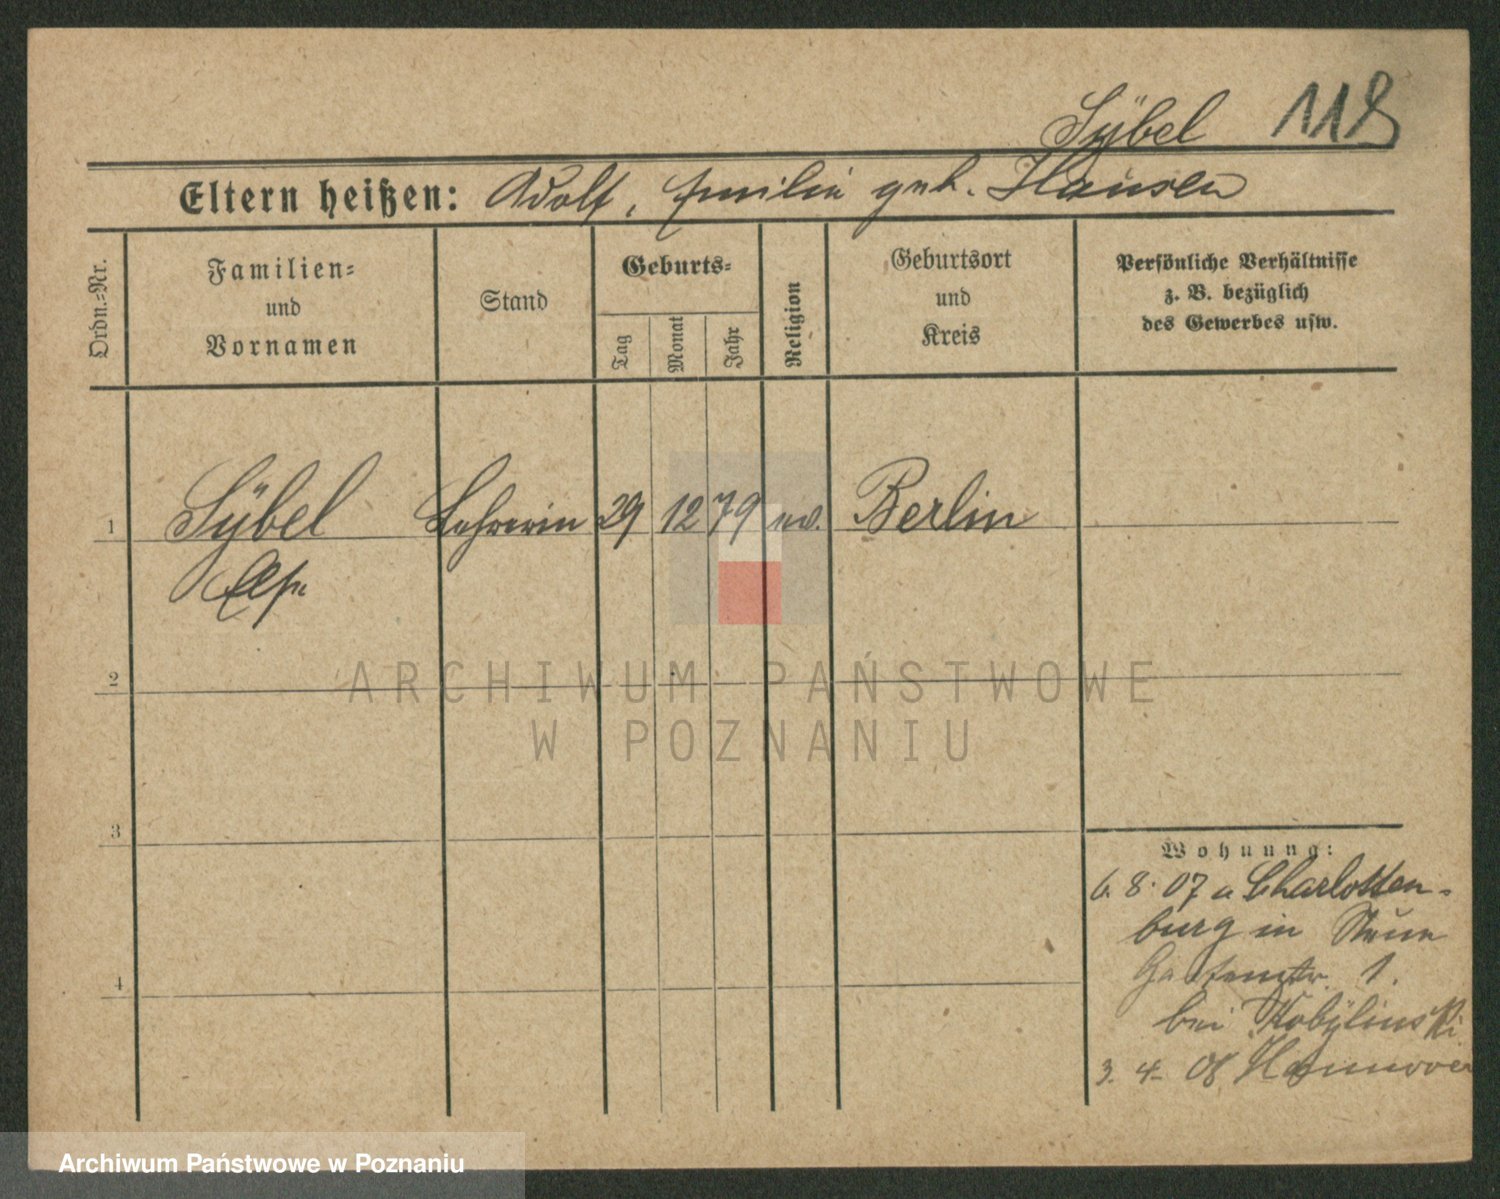 Sÿbel 118
Eltern heißen: Adolf, Emilie geb. Hausen
Ordn.=Nr.
Familien=
und
Vornamen
Stand
Geburts=
Tag
Monat
Jahr
Religion
Geburtsort
und
Kreis
Persönliche Verhältnisse
z. B. bezüglich
des Gewerbes usw.
1 Sÿbel Lehrerin 29 12 79 ev. Berlin
2
3
4
Wohnung:
6. 8. 07 a Charlotten-
burg in
Gartenstr. 1.
bei Kobÿlinski
3. 4. 08 Hannover
ARCHIWUM PAŃSTWOWE
W POZNANIU
Archiwum Państwowe w Poznaniu